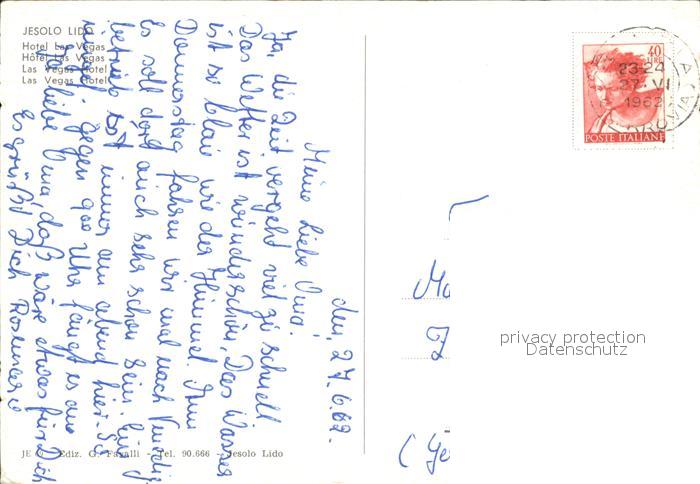 JESOLO LIDO
Hotel Las Vegas
Hôtel Las Vegas
Las Vegas Hotel
Las Vegas Hotel
den, 27.6.62.
Meine liebe Oma!
Ja, die Zeit vergeht viel zu schnell
Das Wetter ist wunderschön, Das Wasser
ist so blau wie der Himmel. Am
Donnerstag fahren wir mal nach Venedig
Es soll dort auch sehr schön sein.
betrieb ist immer am abend hier. So
gegen 900 Uhr fängt es an
liebe Oma, daß wäre etwas für Dich
Es grüßt Dich Rosmarie
40
LIRE
23-24
27.VI
1962
POSTE ITALIANE
Ma
(Ge
privacy protection
Datenschutz
Ediz. G. Favalli - Tel. 90.666 - Jesolo Lido